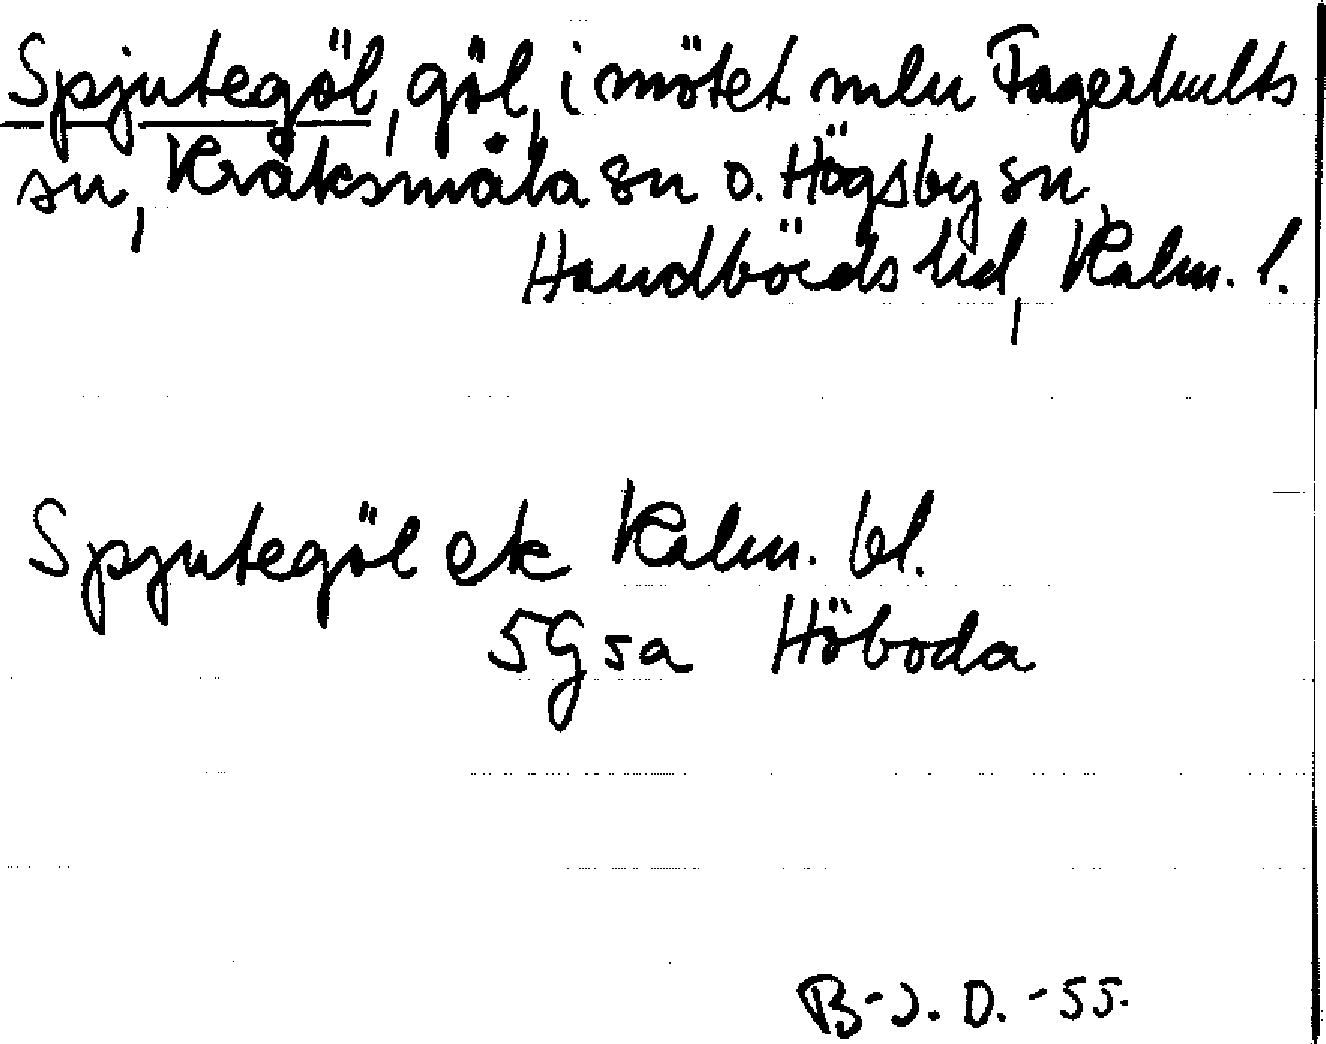 Spjutegöl, göl, i mötet mlu Fagerhults
sn, Kråksmåla sn o. Högsby sn,
Handbörds hd, Kalm. l.
Spjutegöl ek Kalm. bl.
5G5a Höboda
B-J. D. -55.